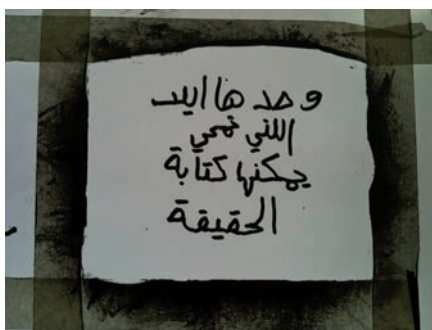 وحدها اليد
التي تمحي
يمكنها كتابة
الحقيقة